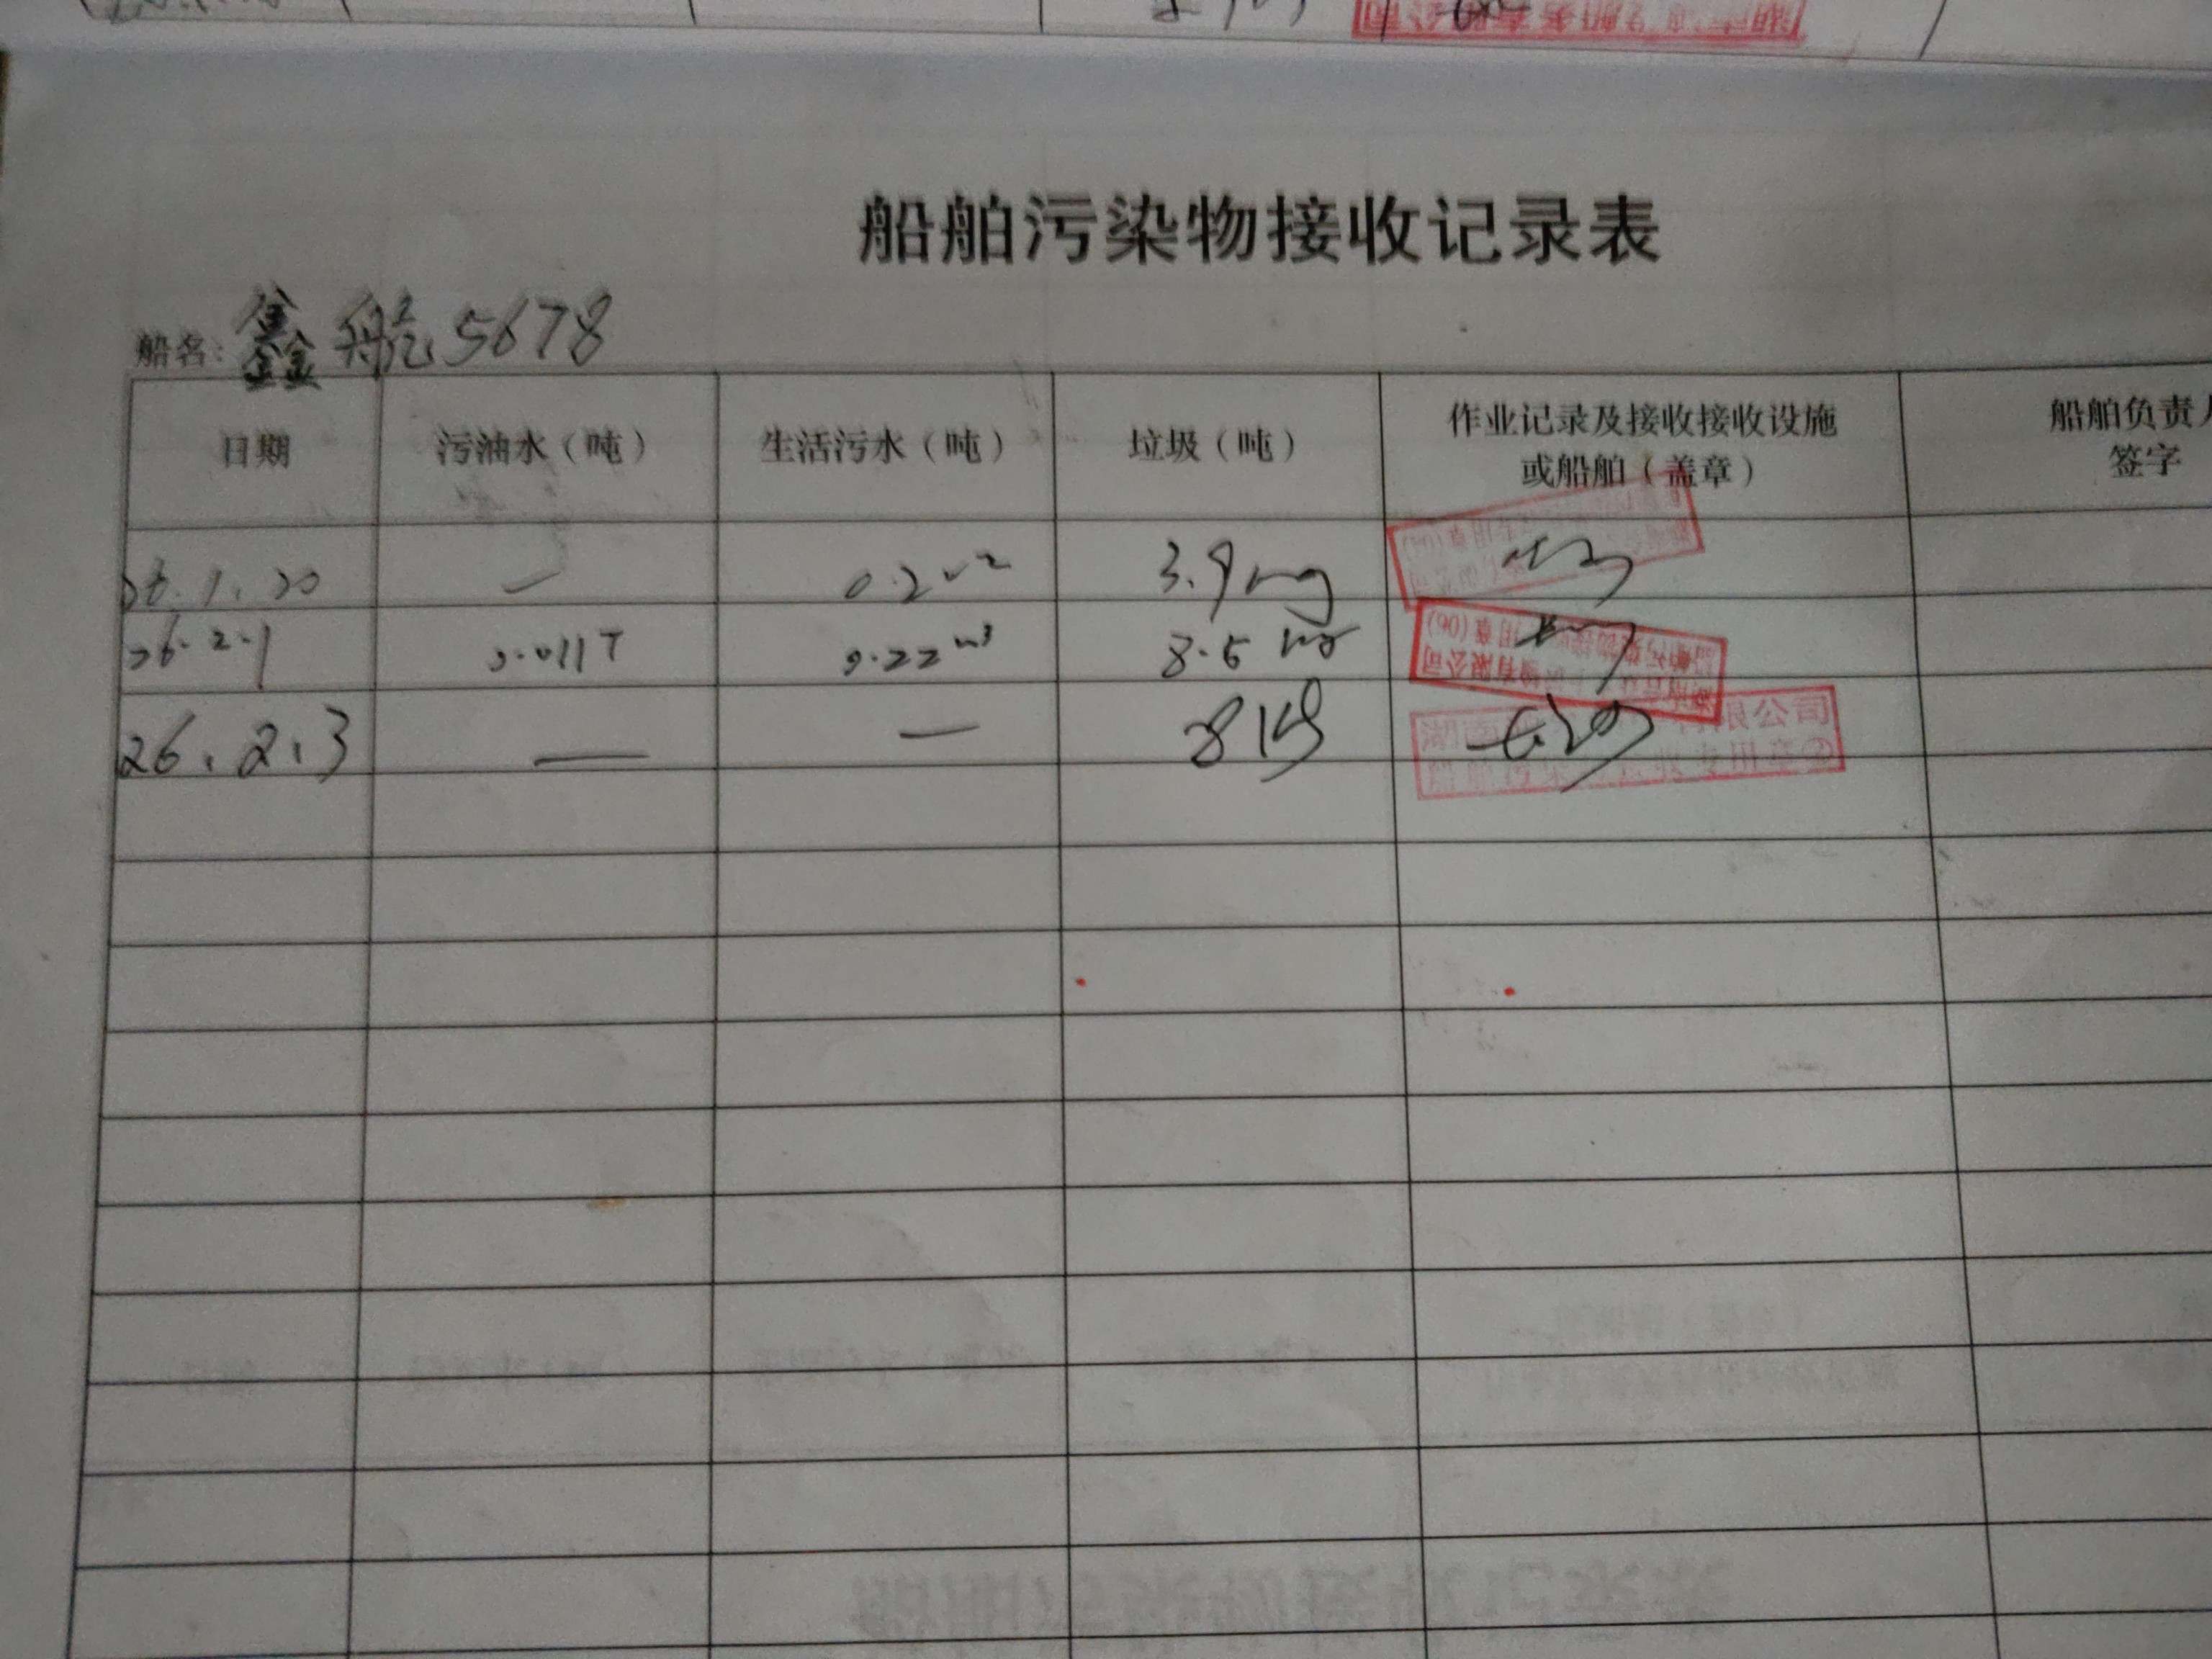 船舶污染物接收记录表
船名: 鑫航5678
日期 污油水(吨) 生活污水(吨) 垃圾(吨) 作业记录及接收接收设施或船舶(盖章) 船舶负责人签字
26.1.20 — 0.2 3.9kg
26.2.1 0.011T 0.22m³ 8.5kg
26.2.3 — — 8kg
限公司